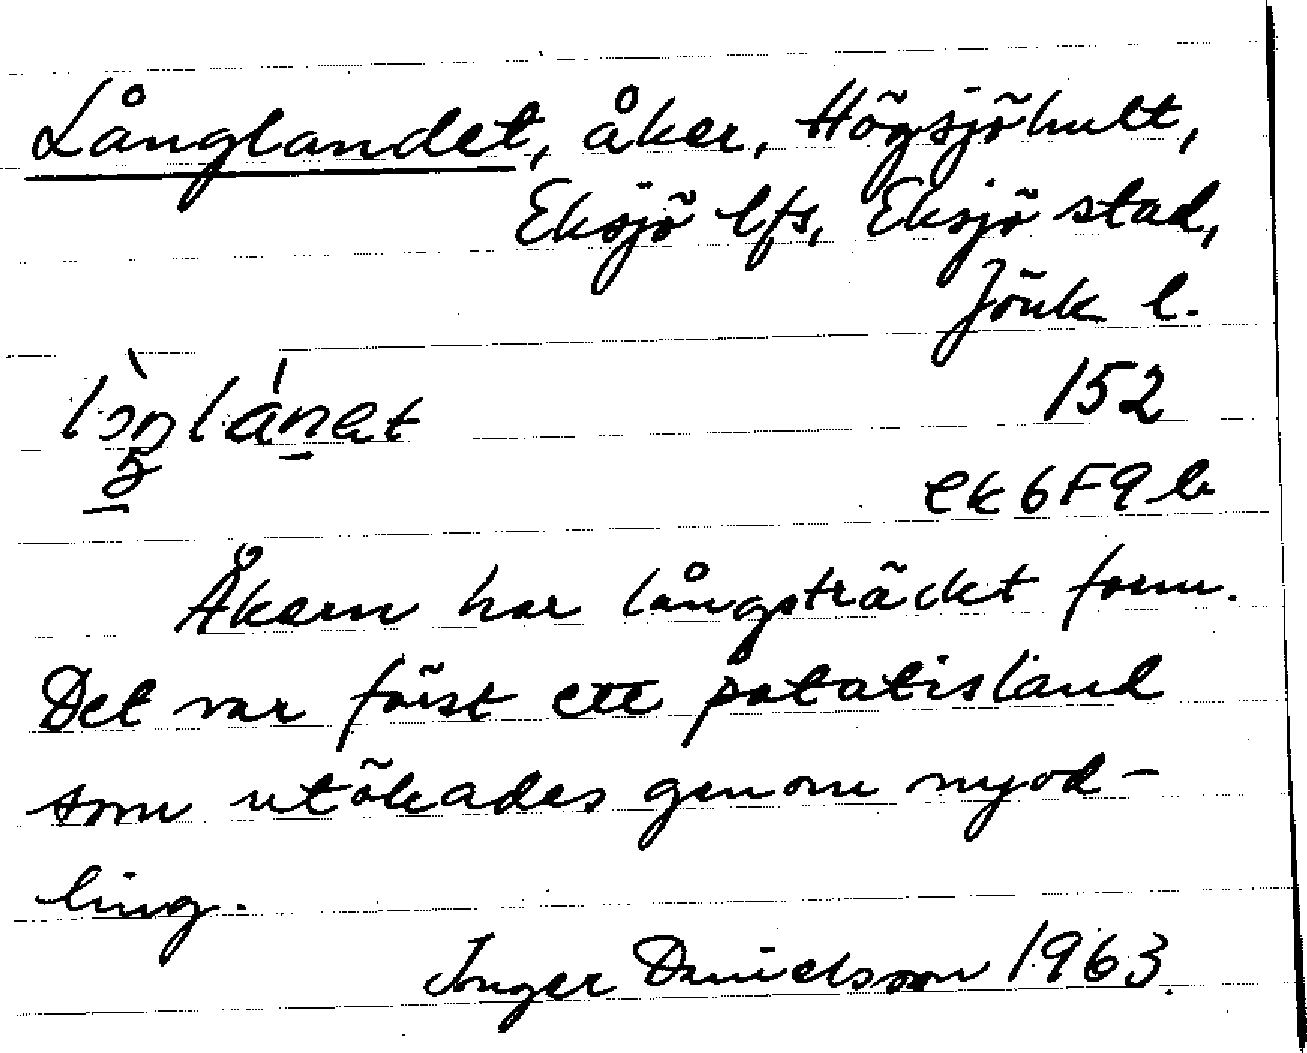 Långlandet, åker, Högsjöhult,
Eksjö lfs, Eksjö stad,
Jönk l.
152
ek 6F9b
Åkern har långsträckt form.
Det var först ett potatisland
som utökades genom nyod-
ling.
Inger Danielsson 1963.